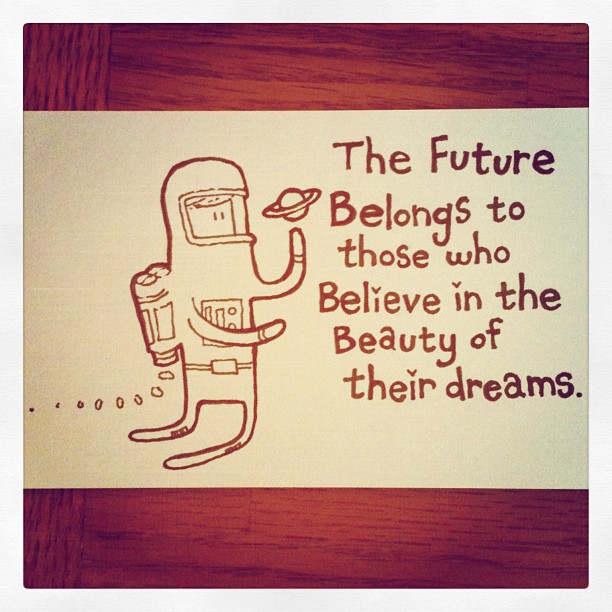 The Future
Belongs to
those who
Believe in the
Beauty of
their dreams.